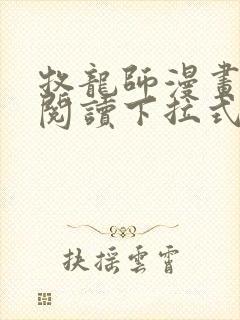 牧龍師漫畫
閱讀下拉式
扶摇雲霄